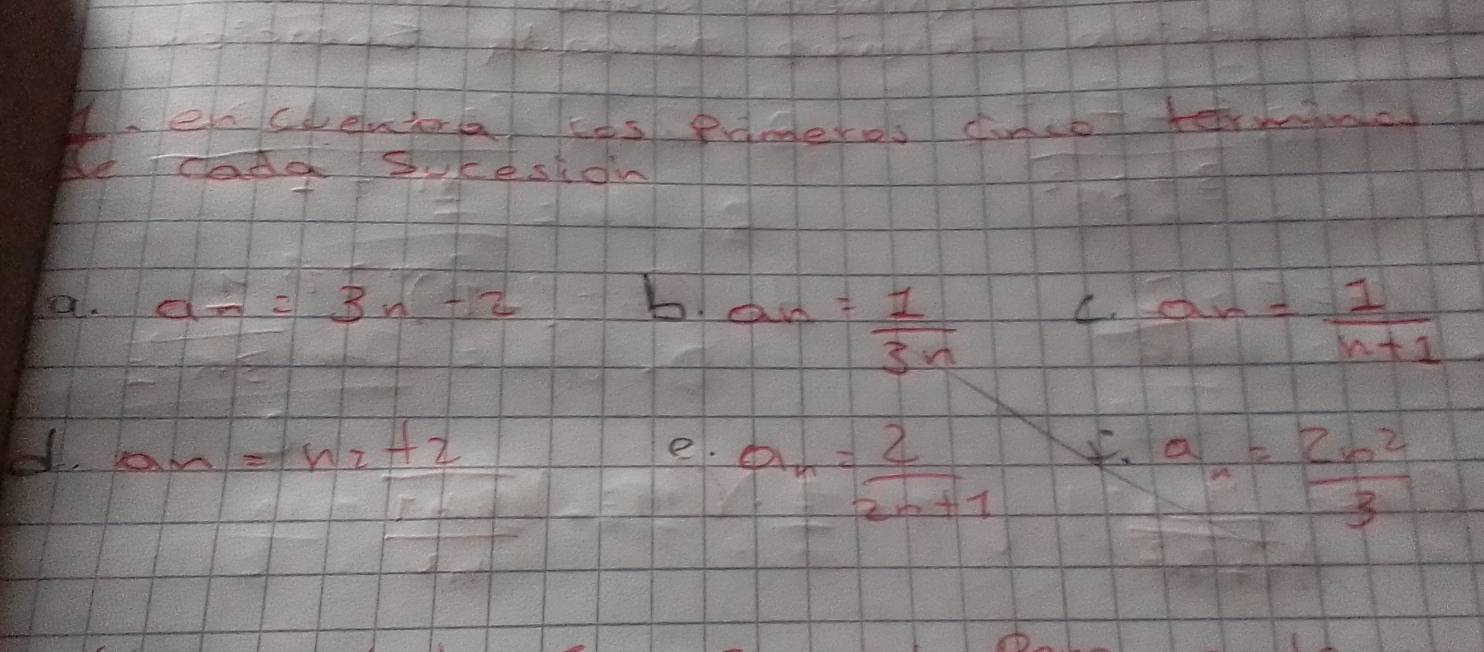 1. encuentra los primeros cinco terminos
de cada sucesion
a. an = 3n - 2 b. an = 1/3n c. an = 1/n+1
d. an = n2 + 2 e. an = 2/2n+1 f. an = 2n²/3